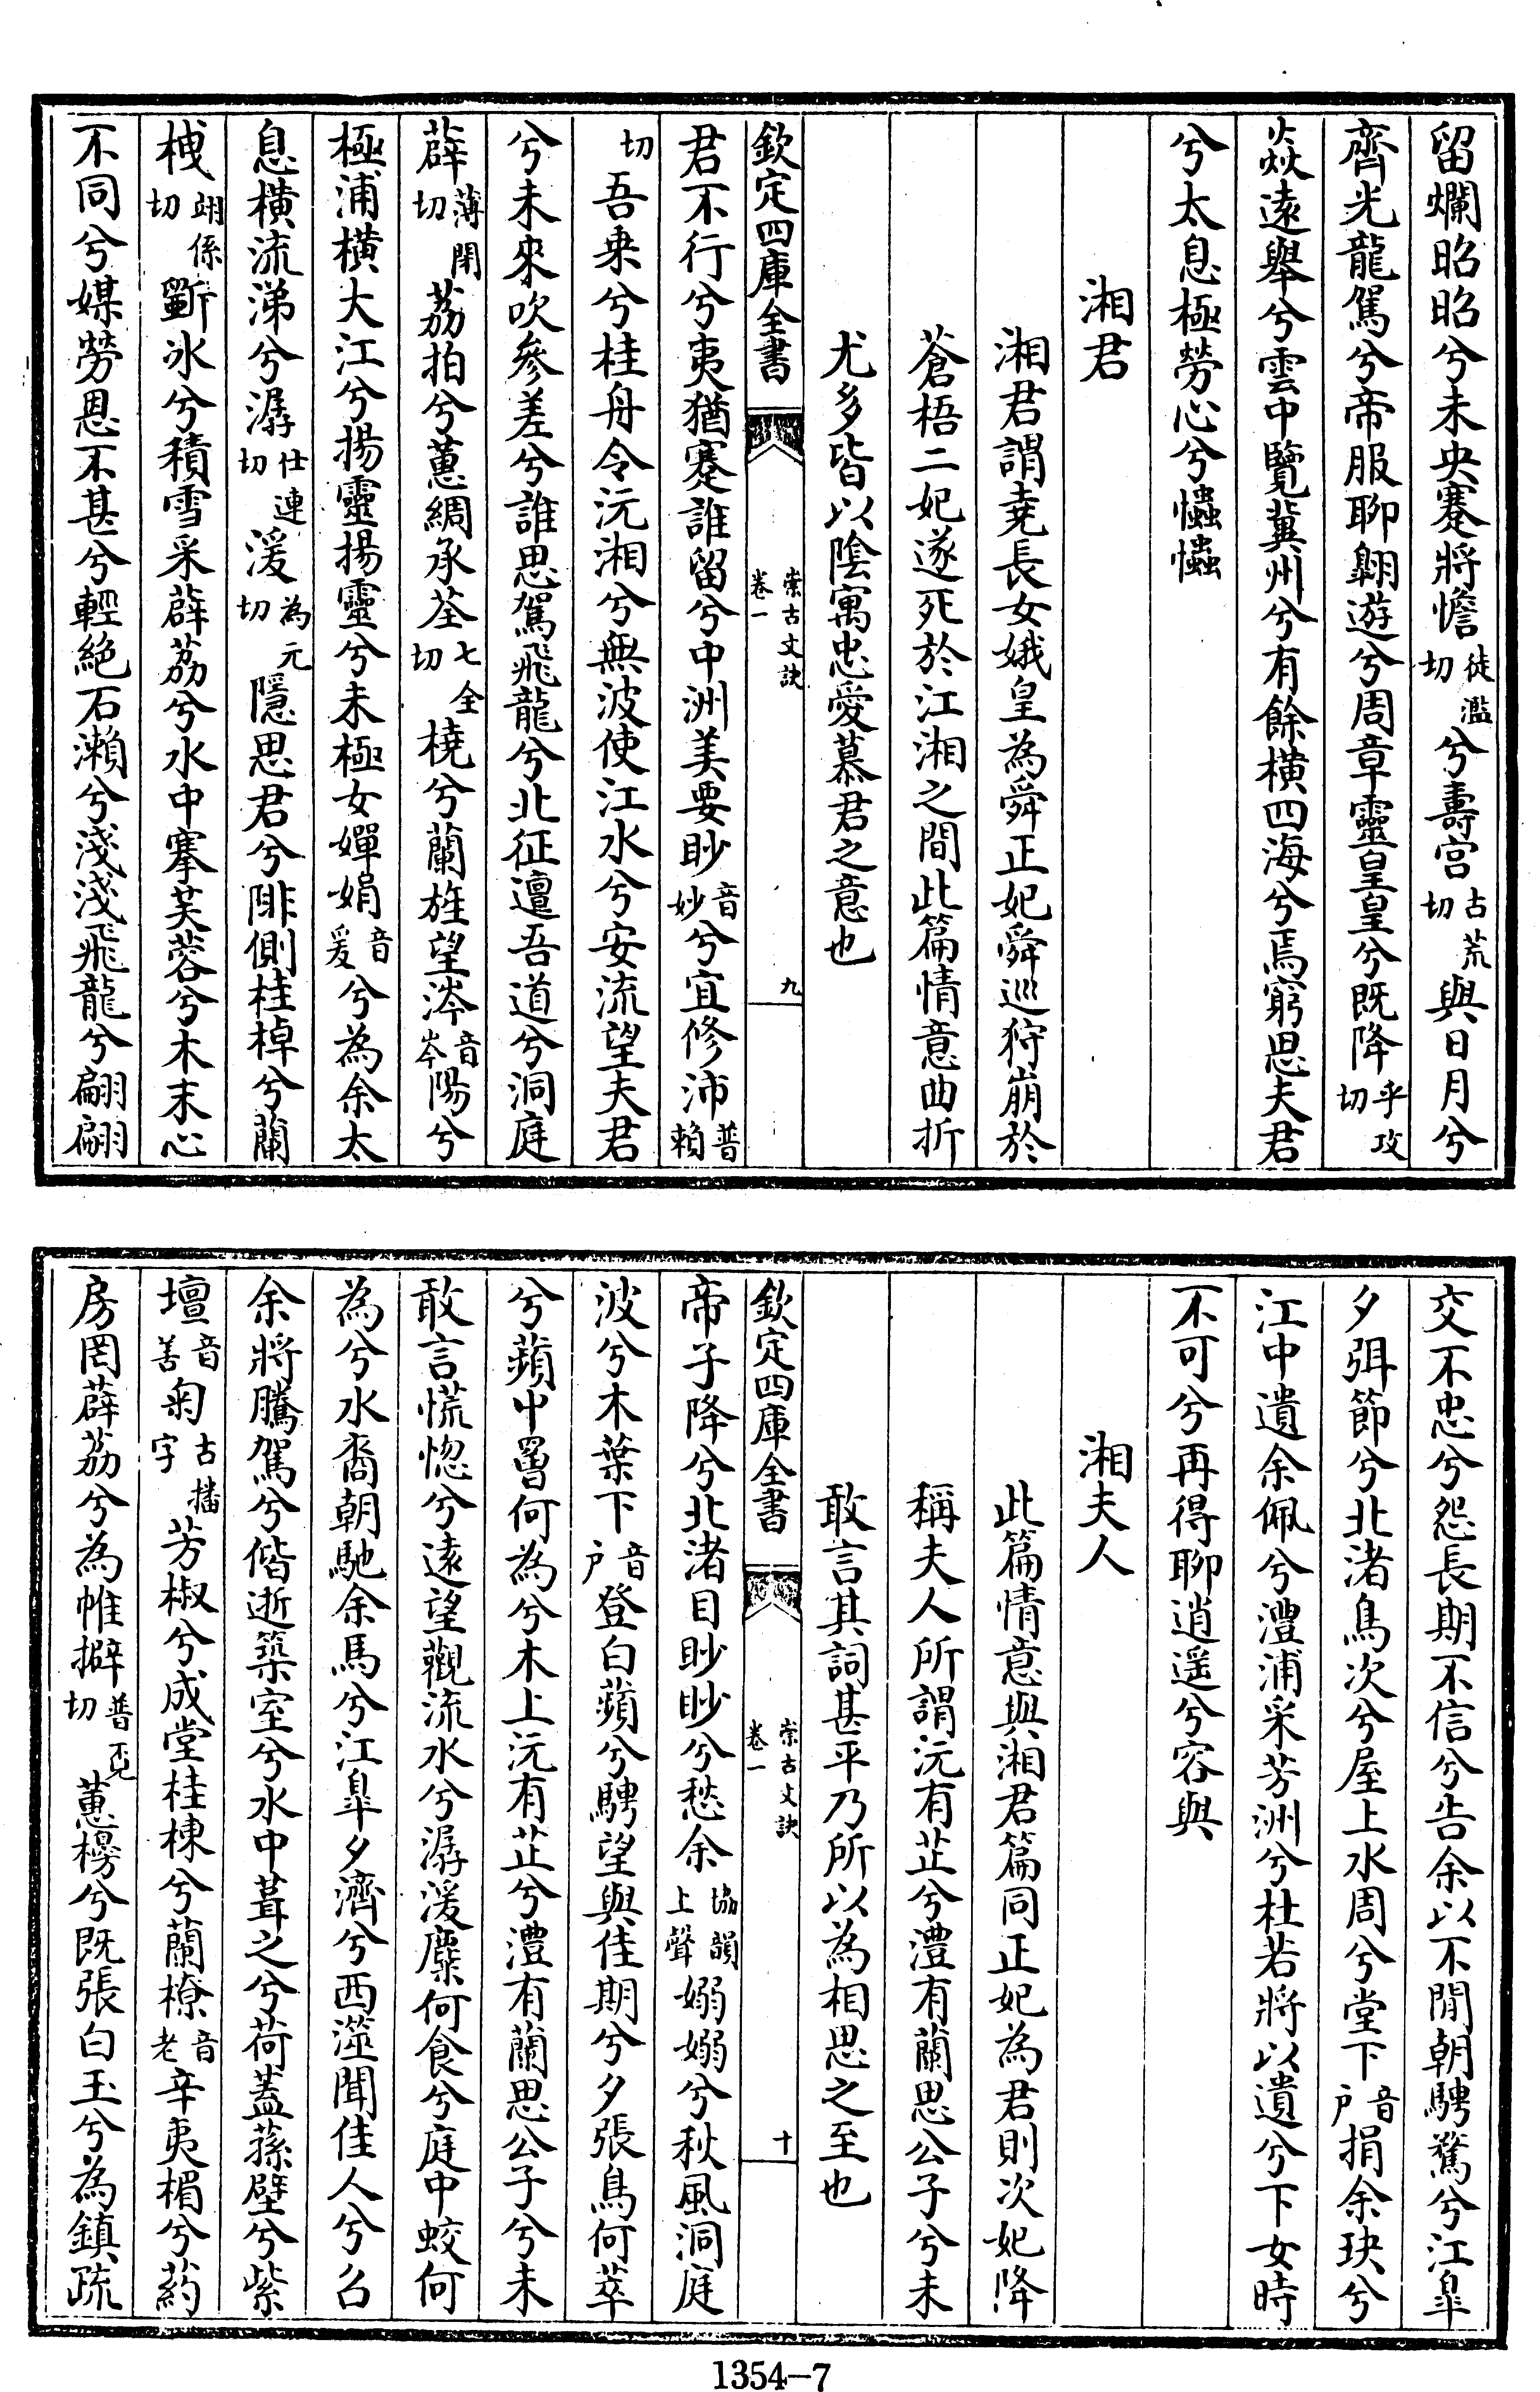 留爛昭昭兮未央蹇將憺徒濫切兮壽宫古荒切與日月兮
齊光龍駕兮帝服聊翺遊兮周章靈皇皇兮既降乎攻切
猋遠舉兮雲中覽冀州兮有餘横四海兮焉窮思夫君
兮太息極勞心兮𢥞𢥞
湘君
湘君謂堯長女娥皇為舜正妃舜巡狩崩於
蒼梧二妃遂死於江湘之間此篇情意曲折
尤多皆以陰寓忠愛慕君之意也
欽定四庫全書 崇古文訣 卷一 九
君不行兮夷猶蹇誰留兮中洲美要眇音妙兮宜修沛普賴
切吾乗兮桂舟令沅湘兮無波使江水兮安流望夫君
兮未來吹參差兮誰思駕飛龍兮北征邅吾道兮洞庭
薜薄閉切荔拍兮蕙綢承荃七全切橈兮蘭旌望涔音岑陽兮
極浦横大江兮揚靈揚靈兮未極女嬋娟音爰兮為余太
息横流涕兮潺仕連切湲為元切隱思君兮陫側桂棹兮蘭
栧翊係切斵冰兮積雪采薜荔兮水中搴芙蓉兮木末心
不同兮媒勞恩不甚兮輕絶石瀨兮淺淺飛龍兮翩翩
交不忠兮怨長期不信兮告余以不閒朝騁騖兮江臯
夕弭節兮北渚鳥次兮屋上水周兮堂下音户捐余玦兮
江中遺余佩兮澧浦采芳洲兮杜若將以遺兮下女時
不可兮再得聊逍遥兮容與
湘夫人
此篇情意與湘君篇同正妃為君則次妃降
稱夫人所謂沅有芷兮澧有蘭思公子兮未
敢言其詞甚平乃所以為相思之至也
欽定四庫全書 崇古文訣 卷一 十
帝子降兮北渚目眇眇兮愁余協韻上聲嫋嫋兮秋風洞庭
波兮木葉下音户登白蘋兮騁望與佳期兮夕張鳥何萃
兮蘋中罾何為兮木上沅有芷兮澧有蘭思公子兮未
敢言慌惚兮遠望觀流水兮潺湲麋何食兮庭中蛟何
為兮水裔朝馳余馬兮江臯夕濟兮西澨聞佳人兮召
余將騰駕兮偕逝築室兮水中葺之兮荷蓋蓀壁兮紫
壇音善匊古播字芳椒兮成堂桂棟兮蘭橑音老辛夷楣兮葯
房罔薜荔兮為帷擗普覓切蕙櫋兮既張白玉兮為鎮疏
1354-7